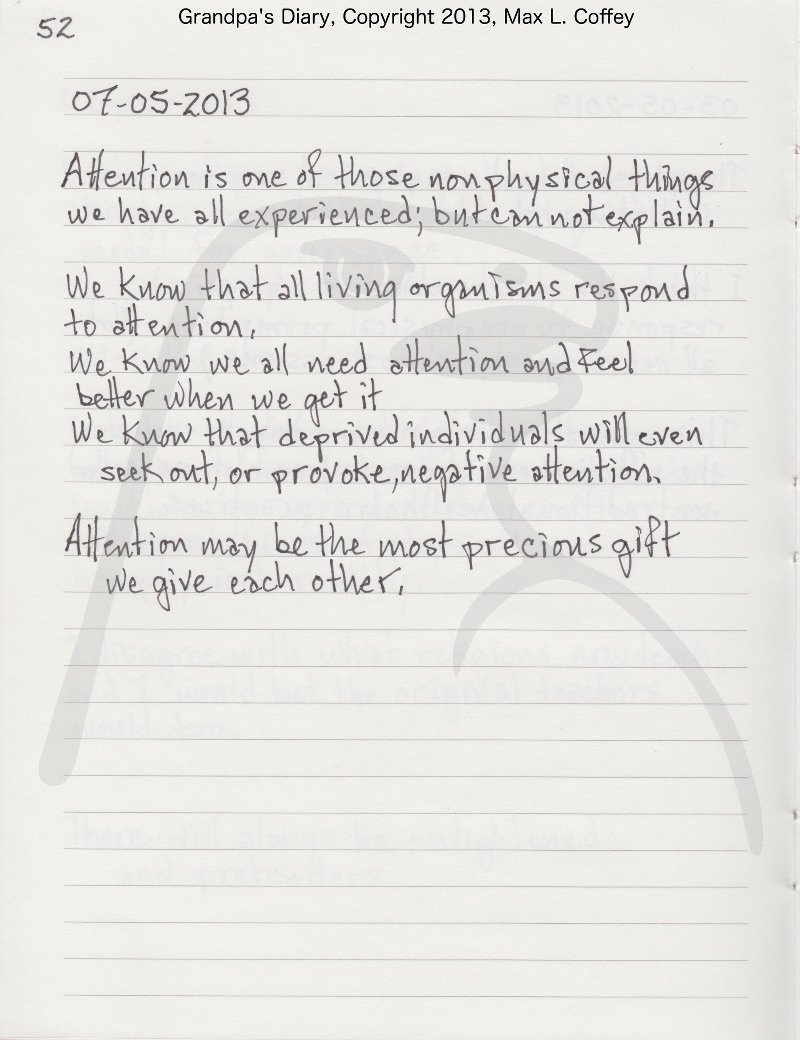 Grandpa's Diary, Copyright 2013, Max L. Coffey
52
07-05-2013
Attention is one of those nonphysical things
we have all experienced; but can not explain.
We know that all living organisms respond
to attention.
We know we all need attention and feel
better when we get it
We know that deprived individuals will even
seek out, or provoke, negative attention.
Attention may be the most precious gift
we give each other.